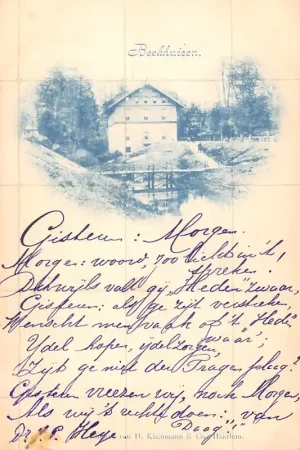 Beekhuizen.
Gisteren : Morgen.
Morgen: woord, zoo licht in 't,
spreken.
Dikwijls valt gij, "Heden" zwaar,
Gisteren: als ge zijt verstreken,
Wenscht men vaak of 't "Hede
waar";
Ydel hopen, ijdel zorgen,
Zijt ge niet der Tragen
Gisteren vreezen wij, noch Morgen,
Als wij 't recht doen: "van
Daag".
Dr. P. Heye
van H. Kleinmann & Co., Haarlem.